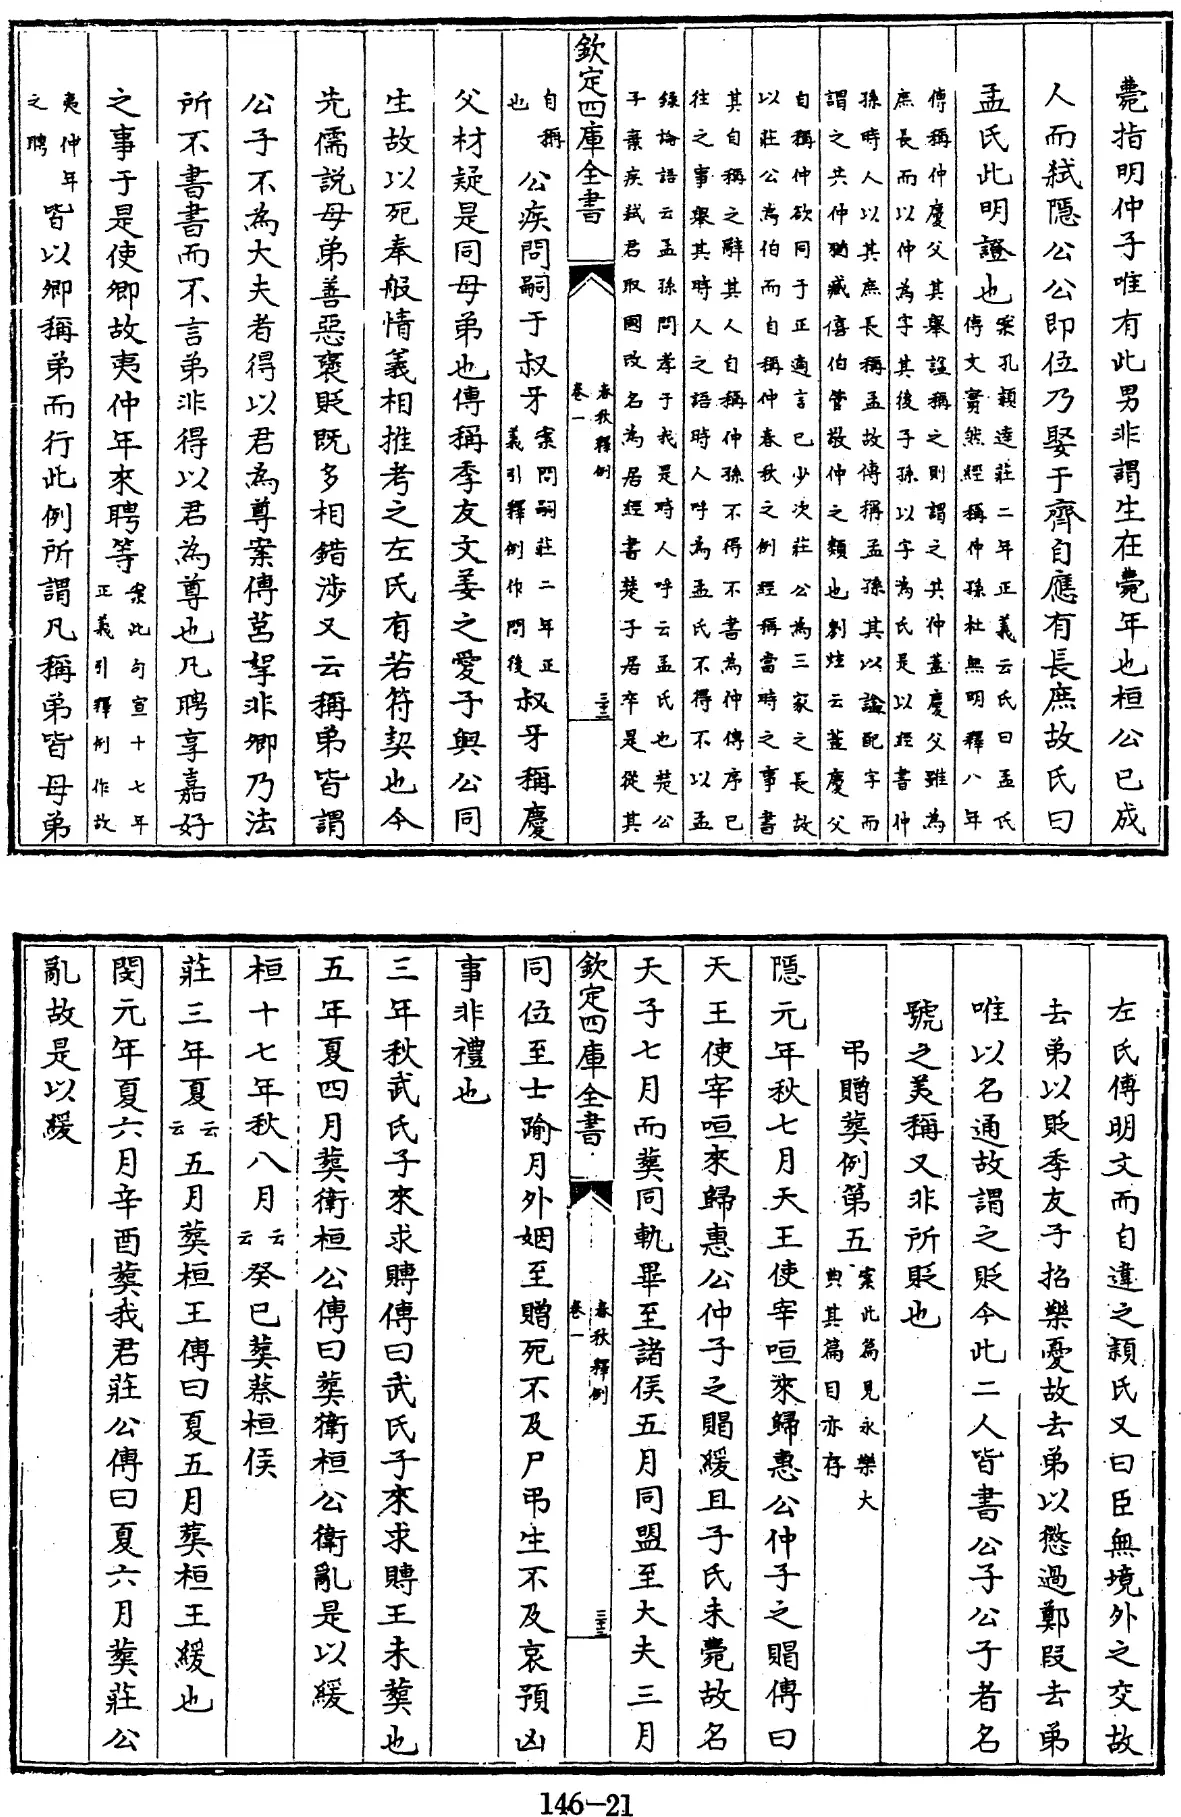 薨指明仲子唯有此男非謂生在薨年也桓公已成
人而弑隱公公即位乃娶于齊自應有長庶故氏曰
孟氏此明證也案孔穎達莊二年正義云氏曰孟氏傳文實然經稱仲孫杜無明釋八年
傳稱仲慶父其舉諡稱之則謂之共仲蓋慶父雖為
庶長而以仲為字其後子孫以字為氏是以經書仲
孫時人以其庶長稱孟故傳稱孟孫其以諡配字而
謂之共仲猶臧僖伯管敬仲之類也劉炫云蓋慶父
自稱仲欲同于正適言已少次莊公為三家之長故
以莊公為伯而自稱仲春秋之例經稱當時之事書
其自稱之辭其人自稱仲孫不得不書為仲傳序已
往之事舉其時人之語時人呼為孟氏不得不以孟
錄論語云孟孫問孝于我是時人呼云孟氏也楚公
子棄疾弑君取國改名為居經書楚子居卒是從其
欽定四庫全書
春秋釋例
卷一
三十二
自稱也公疾問嗣于叔牙案問嗣莊二年正義引釋例作問後叔牙稱慶
父材疑是同母弟也傳稱季友文姜之愛子與公同
生故以死奉般情義相推考之左氏有若符契也今
先儒說母弟善惡褒貶既多相錯涉又云稱弟皆謂
公子不為大夫者得以君為尊案傳莒挐非卿乃法
所不書書而不言弟非得以君為尊也凡聘享嘉好
之事于是使卿故夷仲年來聘等案此句宣十七年正義引釋例作故
夷仲年之聘皆以卿稱弟而行此例所謂凡稱弟皆母弟
左氏傳明文而自違之潁氏又曰臣無境外之交故
去弟以貶季友子招樂憂故去弟以懲過鄭段去弟
唯以名通故謂之貶今此二人皆書公子公子者名
號之美稱又非所貶也
弔贈葬例第五案此篇見永樂大典其篇目亦存
隱元年秋七月天王使宰咺來歸惠公仲子之賵傳曰
天王使宰咺來歸惠公仲子之賵緩且子氏未薨故名
天子七月而葬同軌畢至諸侯五月同盟至大夫三月
欽定四庫全書
春秋釋例
卷一
三十三
同位至士踰月外姻至贈死不及尸弔生不及哀預凶
事非禮也
三年秋武氏子來求賻傳曰武氏子來求賻王未葬也
五年夏四月葬衛桓公傳曰葬衛桓公衛亂是以緩
桓十七年秋八月云云癸巳葬蔡桓侯
莊三年夏云云五月葬桓王傳曰夏五月葬桓王緩也
閔元年夏六月辛酉葬我君莊公傳曰夏六月葬莊公
亂故是以緩
146-21